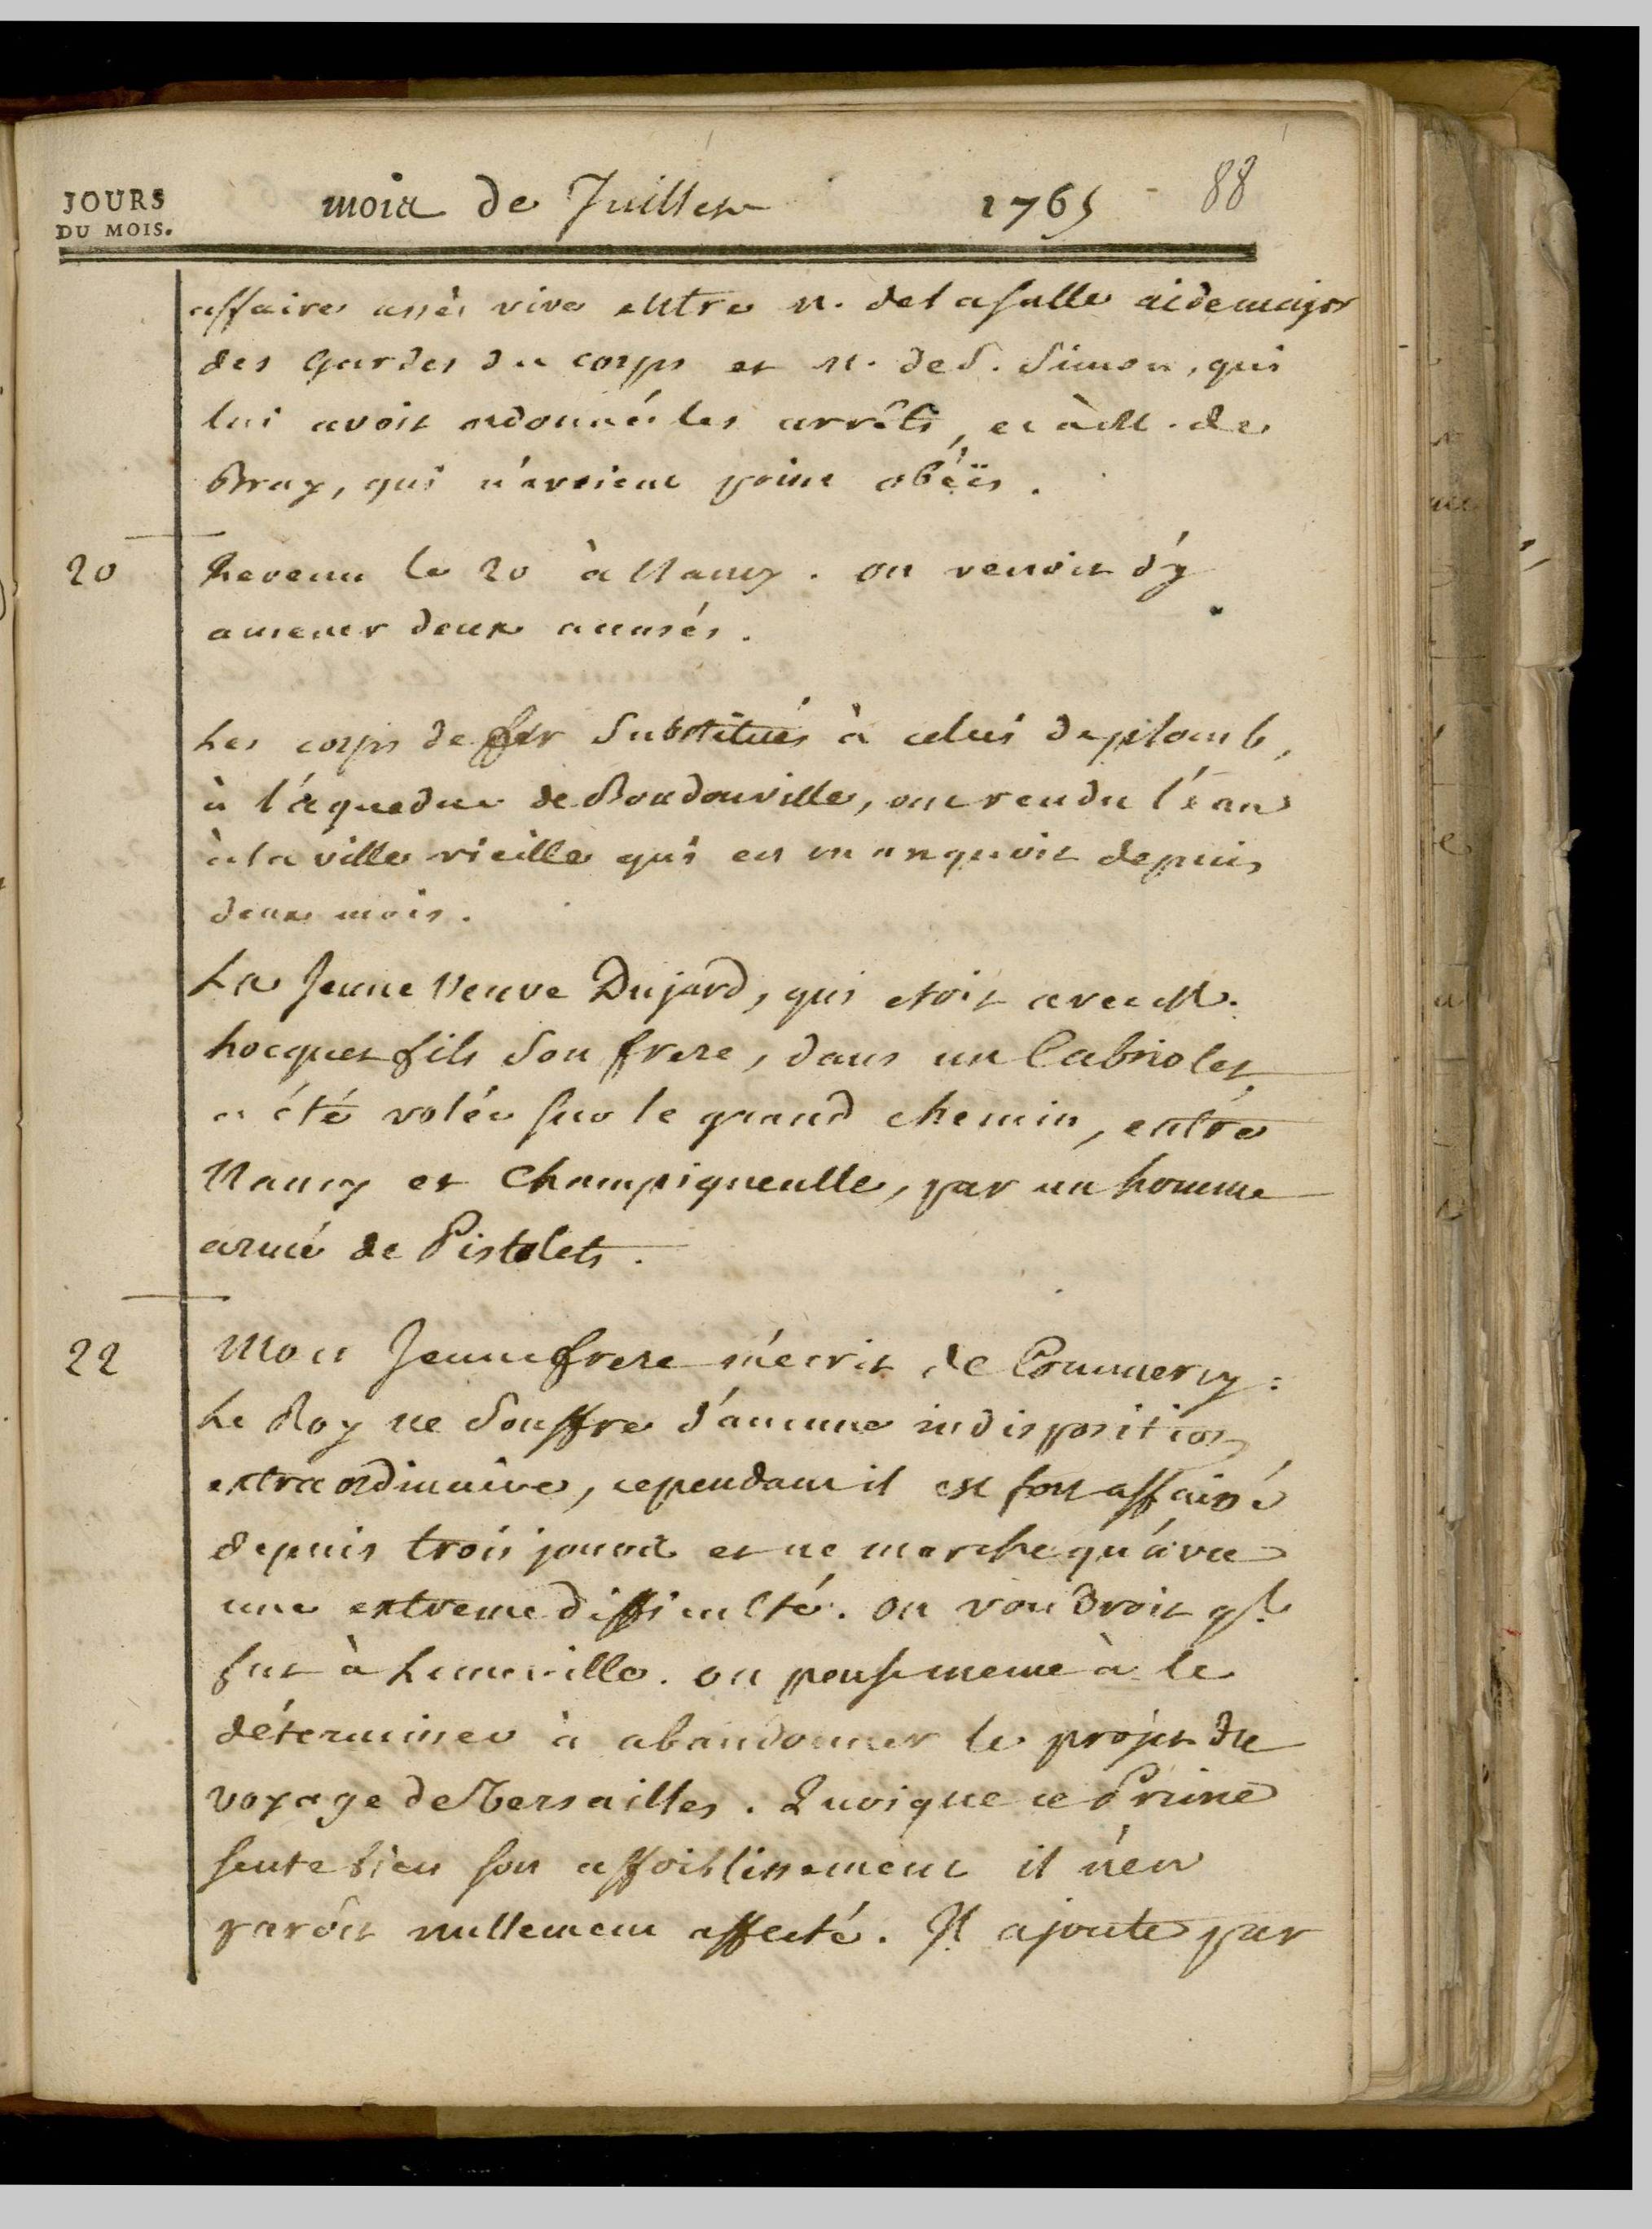 JOURS
DU MOIS.
mois de Juillet 1765 88
affaire assés vive entre M. de la salle aide major
des Gardes du corps et M. de S. Simon, qui
lui avoit ordonné les arrêts, et à M. de
Bray, qui n'avoient point obéïs.
20
Revenu le 20 à Nancy. on venoit d'y
amener deux accusés.
Les corps de fer Substitués à celui de plomb,
à l'aqueduc de Boudonville, ont rendu l'eau
à la ville vieille qui en manquoit depuis
deux mois.
La Jeune Veuve Dujard, qui etoit avec M.
hocquet fils Son frere, dans un Cabriolet
a été volée sur le grand chemin, entre
Nancy et Champigneulle, par un homme
armé de Pistolets.
22
Mon Jeune frere m'écrit de Commercy:
Le Roy ne Souffre d'aucune indisposition
extraordinaire, cependant il est fort affaissé
depuis trois jours et ne marche qu'avec
une extreme difficulté. on voudroit ql.
fut à Luneville. on pense meme à le
déterminer à abandonner le projet du
voyage de Versailles. Quoique ce Prince
sente bien son affoiblissement il n'en
paroit nullement affecté. Il ajoute par